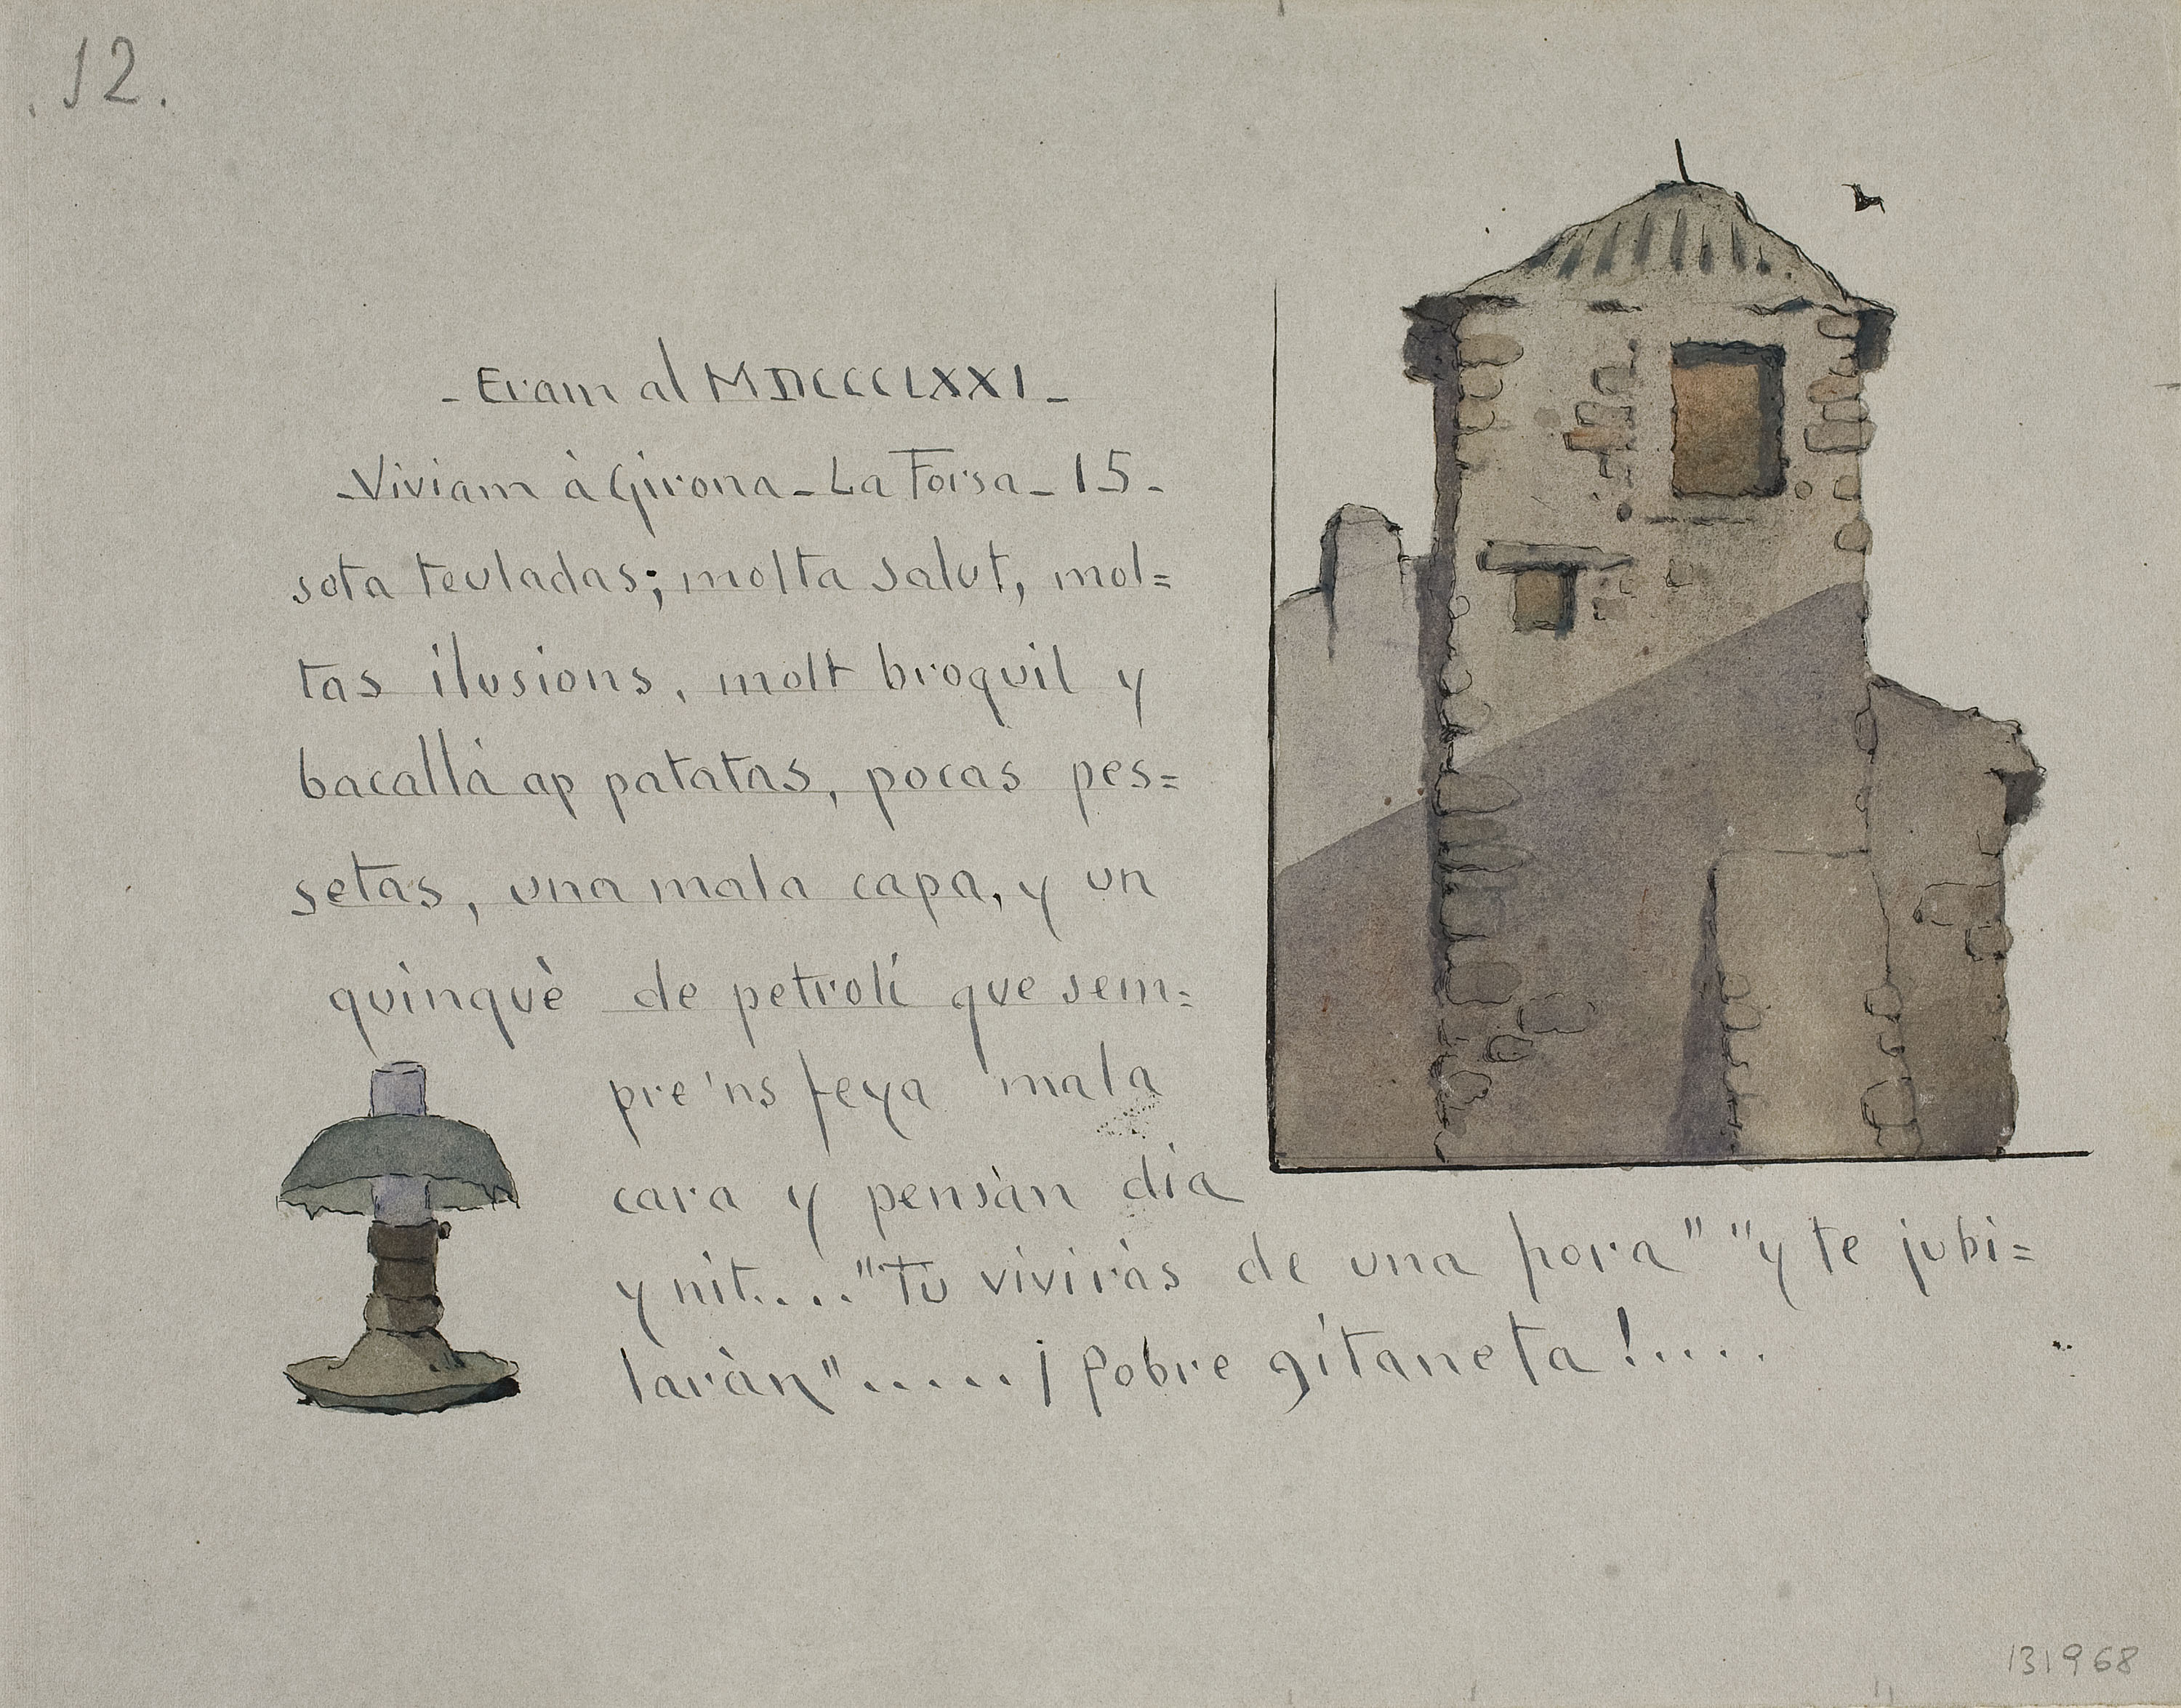 .12.
- Eram al MDCCCLXXI -
- Viviam à Girona - La Forsa - 15 -
sota teuladas; molta salut, mol=
tas ilusions, molt broquil y
bacallà ap patatas, pocas pes=
setas, una mala capa, y un
quinquè de petroli que sem=
pre 'ns feya mala
cara y pensàn dia
y nit...."Tu viviràs de una hora" "y te jubi=
laràn"......¡Pobre gitaneta!....
131968